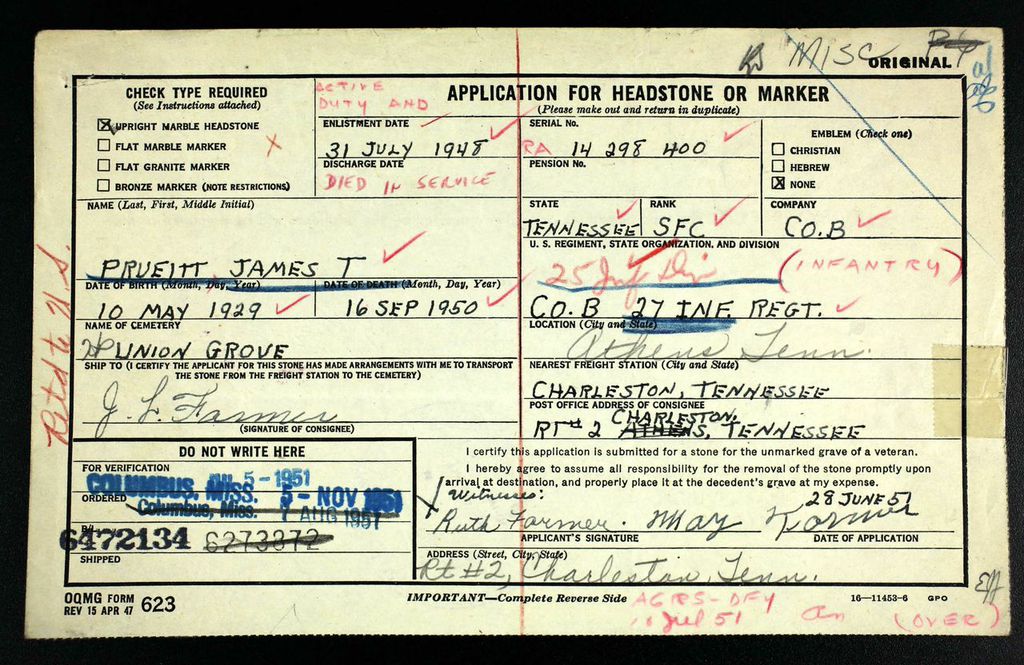 MISC
ORIGINAL
CHECK TYPE REQUIRED
(See Instructions attached)
UPRIGHT MARBLE HEADSTONE
FLAT MARBLE MARKER
FLAT GRANITE MARKER
BRONZE MARKER (NOTE RESTRICTIONS)
ACTIVE
DUTY AND
ENLISTMENT DATE
31 JULY 1948
DISCHARGE DATE
DIED IN SERVICE
APPLICATION FOR HEADSTONE OR MARKER
(Please make out and return in duplicate)
SERIAL No.
RA 14 298 400
PENSION No.
EMBLEM (Check one)
CHRISTIAN
HEBREW
NONE
NAME (Last, First, Middle Initial)
PRUEITT JAMES T
STATE
TENNESSEE
RANK
SFC
COMPANY
CO.B
U. S. REGIMENT, STATE ORGANIZATION, AND DIVISION
25 Inf Div (INFANTRY)
CO.B 27 INF. REGT.
DATE OF BIRTH (Month, Day, Year)
10 MAY 1929
DATE OF DEATH (Month, Day, Year)
16 SEP 1950
NAME OF CEMETERY
UNION GROVE
LOCATION (City and State)
Athens Tenn.
SHIP TO (I CERTIFY THE APPLICANT FOR THIS STONE HAS MADE ARRANGEMENTS WITH ME TO TRANSPORT
THE STONE FROM THE FREIGHT STATION TO THE CEMETERY)
J. L. Farmer
(SIGNATURE OF CONSIGNEE)
NEAREST FREIGHT STATION (City and State)
CHARLESTON, TENNESSEE
POST OFFICE ADDRESS OF CONSIGNEE
CHARLESTON,
RT# 2 ATHENS, TENNESSEE
Retd to U.S.
DO NOT WRITE HERE
FOR VERIFICATION
5-1951
COLUMBUS, MISS. 5-NOV 1951
ORDERED
Columbus, Miss. 7 AUG 1951
6472134 6273872
SHIPPED
I certify this application is submitted for a stone for the unmarked grave of a veteran.
I hereby agree to assume all responsibility for the removal of the stone promptly upon
arrival at destination, and properly place it at the decedent's grave at my expense.
Witness:
28 JUNE 51
Ruth Farmer. May Farmer
APPLICANT'S SIGNATURE
DATE OF APPLICATION
ADDRESS (Street, City, State)
Rt #2, Charleston, Tenn.
OQMG FORM
REV 15 APR 47 623
IMPORTANT—Complete Reverse Side
16—11453-6 GPO
AGRS-DFY
Jul 51
(OVER)